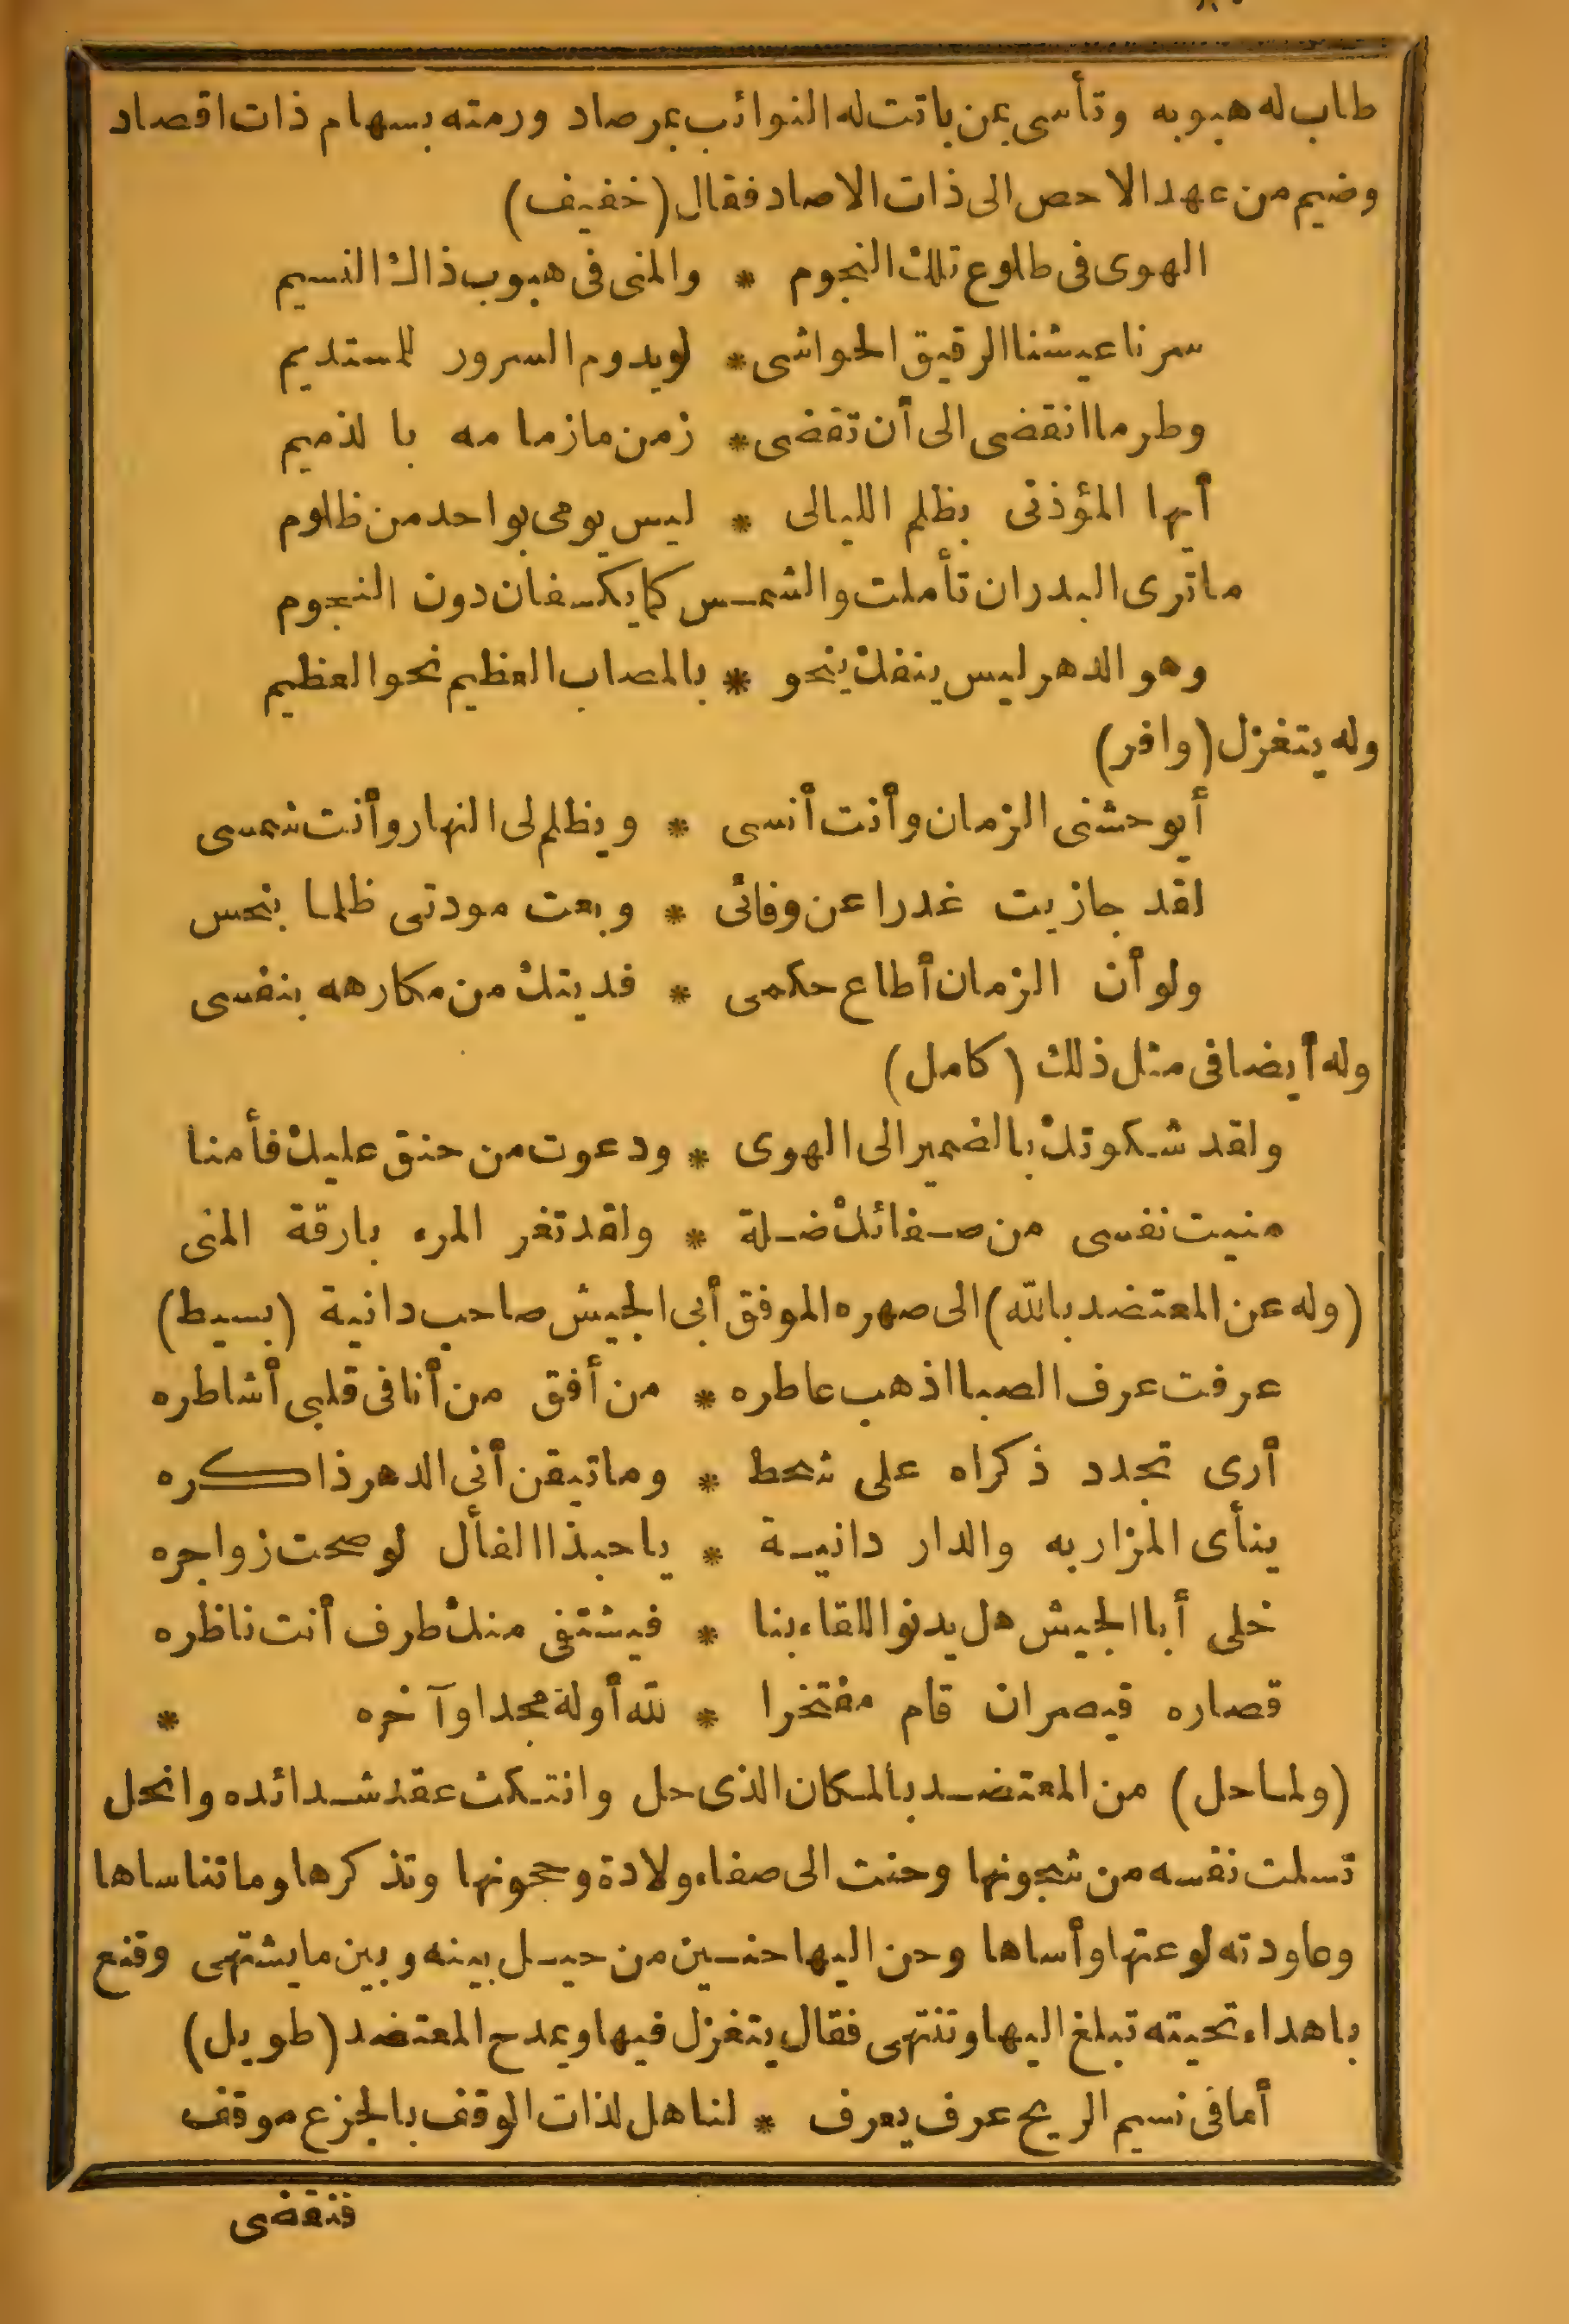 طاب له هبوبه وتأسى بمن باتت له النوائب بمرصاد ورمته بسهام ذات اقصاد
وضيم من عهد الاحص الى ذات الاصاد فقال (خفيف)
الهوى فى طلوع تلك النجوم * والمنى فى هبوب ذاك النسيم
سرنا عيشنا الرقيق الحواشى * لو يدوم السرور للمستديم
وطر ما انقضى الى أن تقضى * زمن ما زمامه بالذميم
أيها المؤذنى بظلم الليالى * ليس يومى بواحد من ظلوم
ما ترى البدر ان تأملت والشمس كما يكسفان دون النجوم
وهو الدهر ليس ينفك ينحو * بالمصاب العظيم نحو العظيم
وله يتغزل (وافر)
أيوحشنى الزمان وأنت أنسى * ويظلم لى النهار وأنت شمسى
لقد جازيت غدرا عن وفائى * وبعت مودتى ظلما بنحس
ولو أن الزمان أطاع حكمى * فديتك من مكارهه بنفسى
وله أيضا فى مثل ذلك (كامل)
ولقد شكوتك بالضمير الى الهوى * ودعوت من حنق عليك فأمنا
منيت نفسى من صفائك ضلة * ولقد تغر المرء بارقة المنى
(وله عن المعتضد بالله) الى صهره الموفق أبى الجيش صاحب دانية (بسيط)
عرفت عرف الصبا اذ هب عاطره * من أفق من أنا فى قلبى أشاطره
أرى تجدد ذكراه على شحط * وما تيقن أنى الدهر ذاكره
ينأى المزار به والدار دانية * يا حبذا الفأل لو صحت زواجره
خلى أبا الجيش هل يدنو اللقاء بنا * فيشتفى منك طرف أنت ناظره
قصاره قيصر ان قام مفتخرا * لله أوله مجدا وآخره *
(ولما حل) من المعتضد بالمكان الذى حل وانتكث عقد شدائده وانحل
تسلت نفسه من شجونها وحنت الى صفاء ولادة وحجونها وتذكرها وما تناساها
وعاودته لوعتها وأساها وحن اليها حنين من حيل بينه وبين ما يشتهى وقنع
باهداء تحيته تبلغ اليها وتنتهى فقال يتغزل فيها ويمدح المعتضد (طويل)
أما فى نسيم الريح عرف يعرف * لنا هل لذات الوقف بالجزع موقف
فنقضى